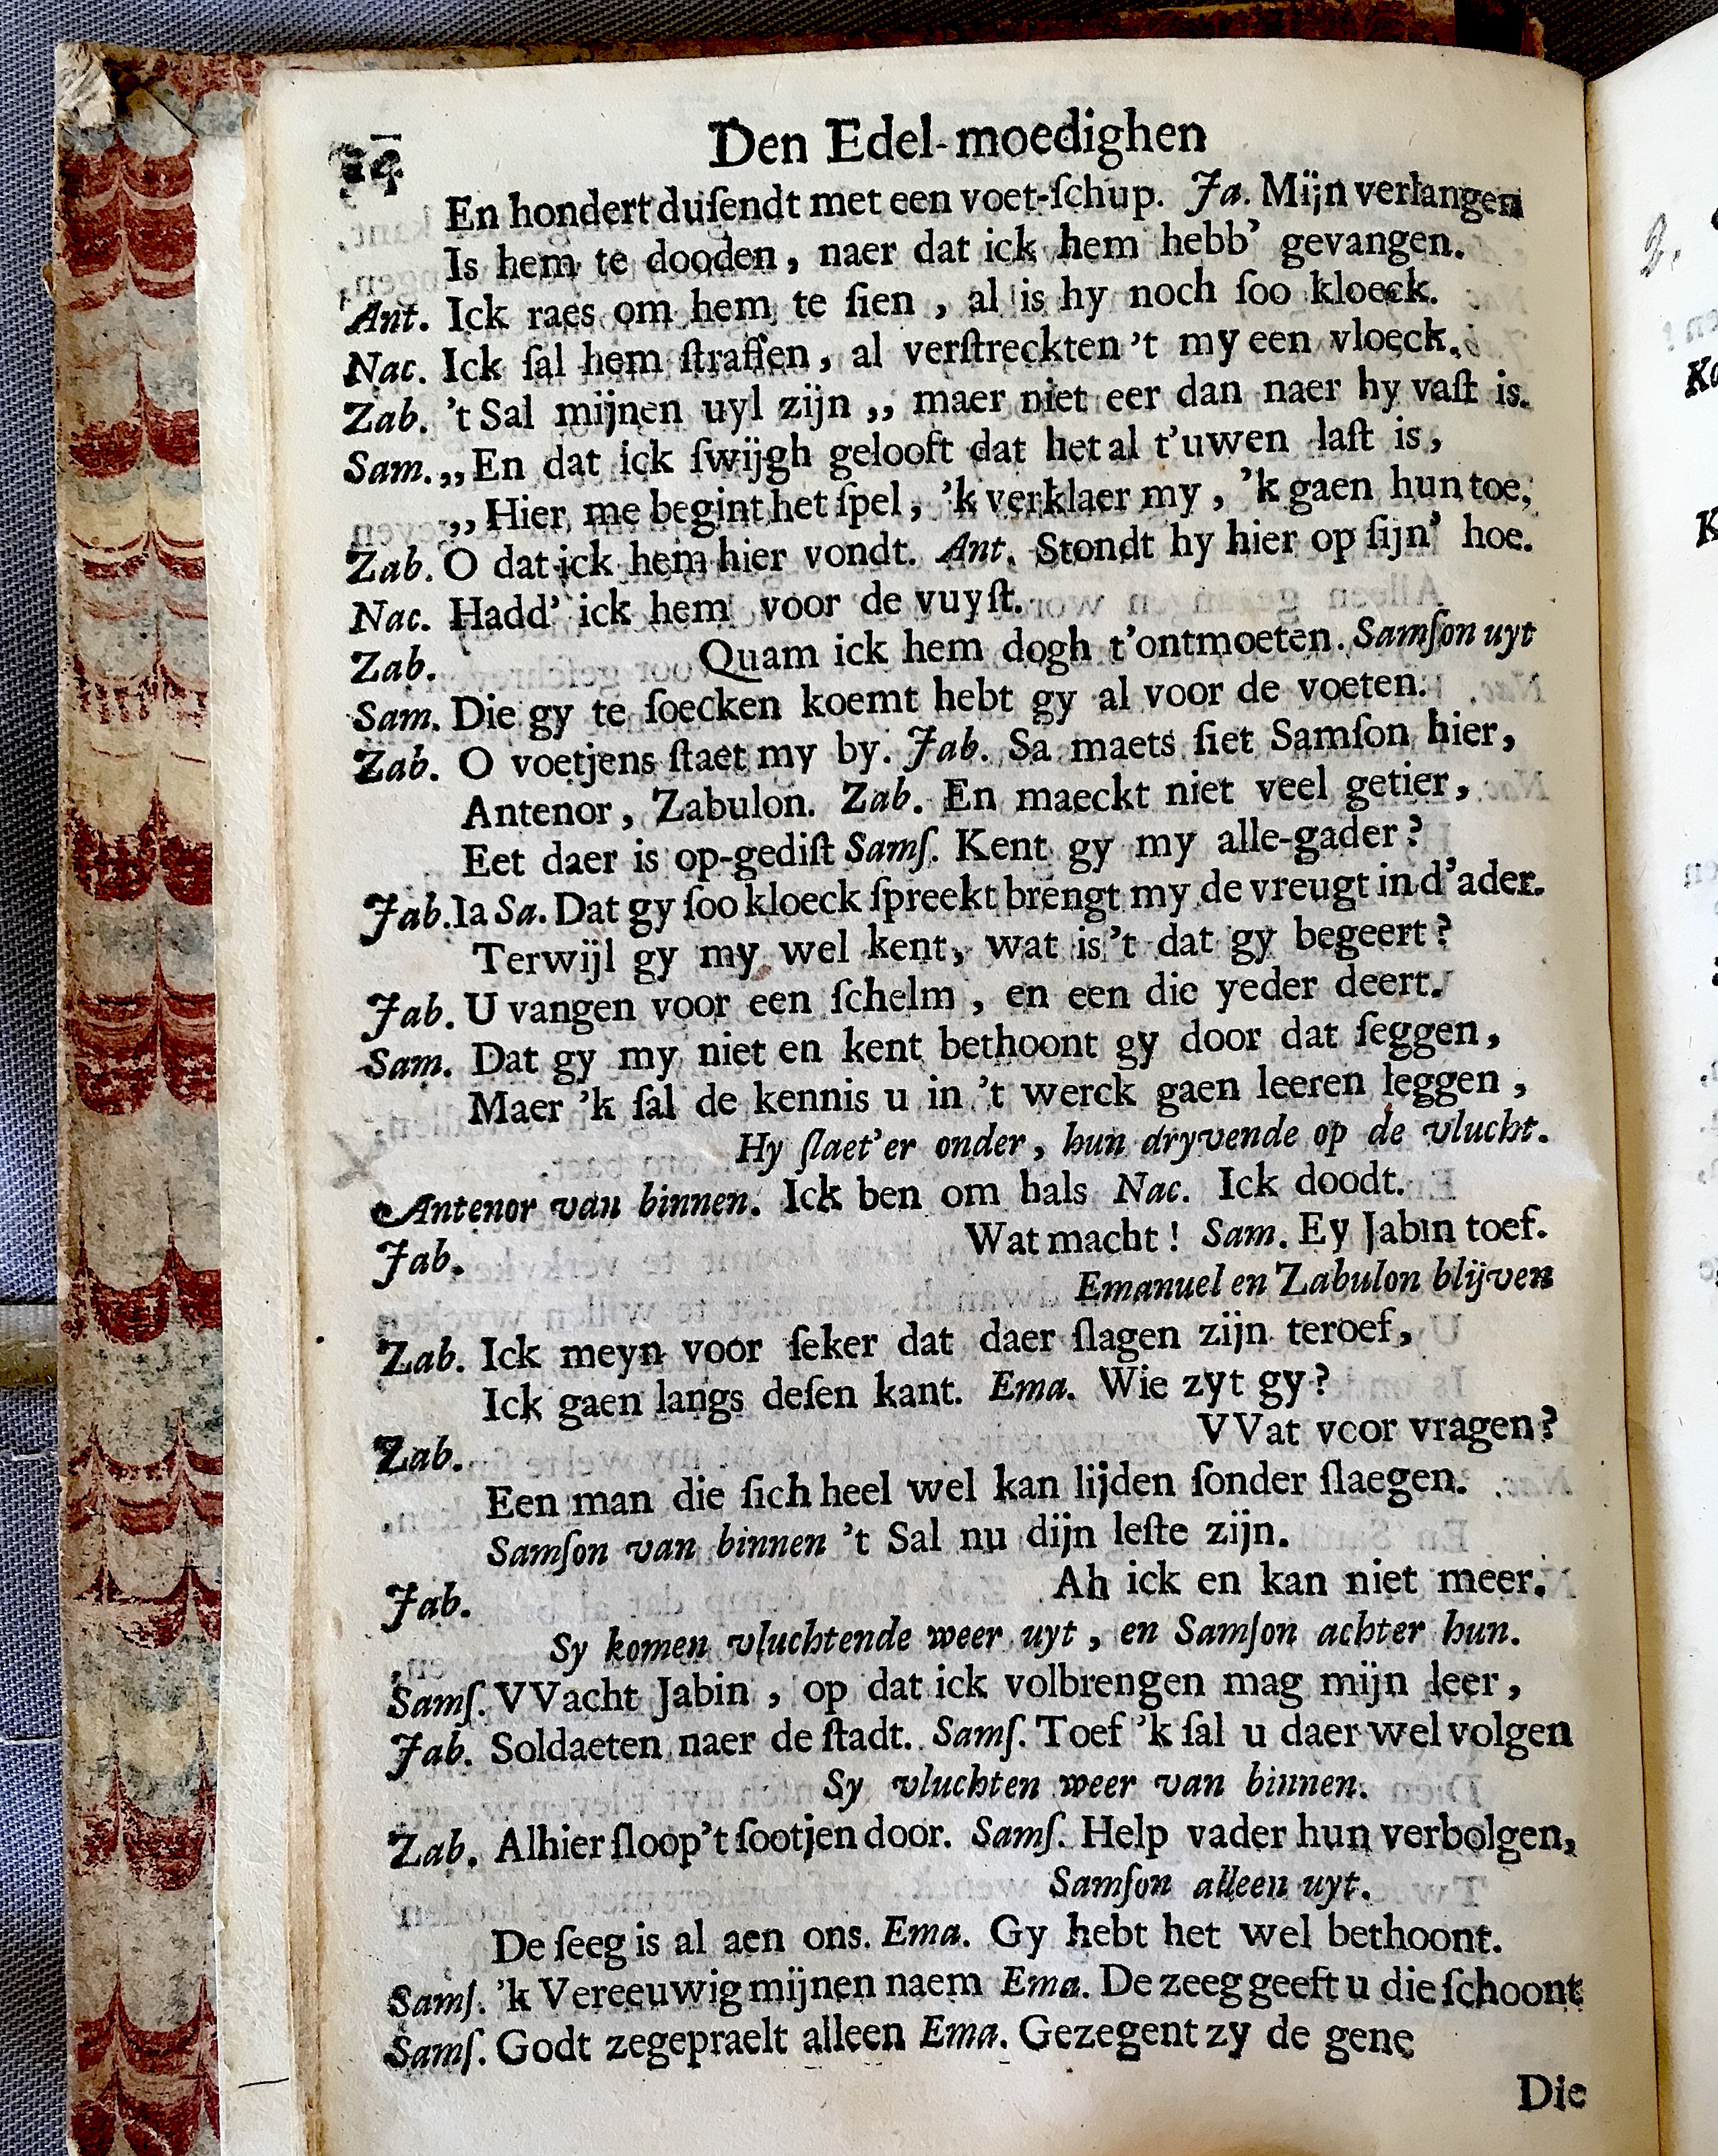 Den Edel-moedighen
En hondert duſendt met een voet-ſchup. Ja. Mijn verlangen
Is hem te dooden, naer dat ick hem hebb' gevangen.
Ant. Ick raes om hem te ſien, al is hy noch ſoo kloeck.
Nac. Ick ſal hem ſtraffen, al verſtreckten 't my een vloeck.
Zab. 't Sal mijnen uyl zijn ,, maer niet eer dan naer hy vaſt is.
Sam. ,, En dat ick ſwijgh gelooft dat het al t'uwen laſt is,
,, Hier me begint het ſpel, 'k verklaer my, 'k gaen hun toe,
Zab. O dat ick hem hier vondt. Ant. Stondt hy hier op ſijn' hoe.
Nac. Hadd' ick hem voor de vuyſt.
Zab. Quam ick hem dogh t'ontmoeten. Samſon uyt
Sam. Die gy te ſoecken koemt hebt gy al voor de voeten.
Zab. O voetjens ſtaet my by. Jab. Sa maets ſiet Samſon hier,
Antenor, Zabulon. Zab. En maeckt niet veel getier,
Eet daer is op-gediſt Samſ. Kent gy my alle-gader?
Jab. Ia Sa. Dat gy ſoo kloeck ſpreekt brengt my de vreugt in d'ader.
Terwijl gy my wel kent, wat is 't dat gy begeert?
Jab. U vangen voor een ſchelm, en een die yeder deert.
Sam. Dat gy my niet en kent bethoont gy door dat ſeggen,
Maer 'k ſal de kennis u in 't werck gaen leeren leggen,
Hy ſlaet'er onder, hun dryvende op de vlucht.
Antenor van binnen. Ick ben om hals Nac. Ick doodt.
Jab. Wat macht! Sam. Ey Jabin toef.
Emanuel en Zabulon blijven
Zab. Ick meyn voor ſeker dat daer ſlagen zijn teroef,
Ick gaen langs deſen kant. Ema. Wie zyt gy?
Zab. VVat vcor vragen?
Een man die ſich heel wel kan lijden ſonder ſlaegen.
Samſon van binnen 't Sal nu dijn leſte zijn.
Jab. Ah ick en kan niet meer.
Sy komen vluchtende weer uyt, en Samſon achter hun.
Samſ. VVacht Jabin, op dat ick volbrengen mag mijn leer,
Jab. Soldaeten naer de ſtadt. Samſ. Toef 'k ſal u daer wel volgen
Sy vluchten weer van binnen.
Zab. Alhier ſloop't ſootjen door. Samſ. Help vader hun verbolgen,
Samſon alleen uyt.
De ſeeg is al aen ons. Ema. Gy hebt het wel bethoont.
Samſ. 'k Vereeuwig mijnen naem Ema. De zeeg geeft u die ſchoont
Samſ. Godt zegepraelt alleen Ema. Gezegent zy de gene
Die